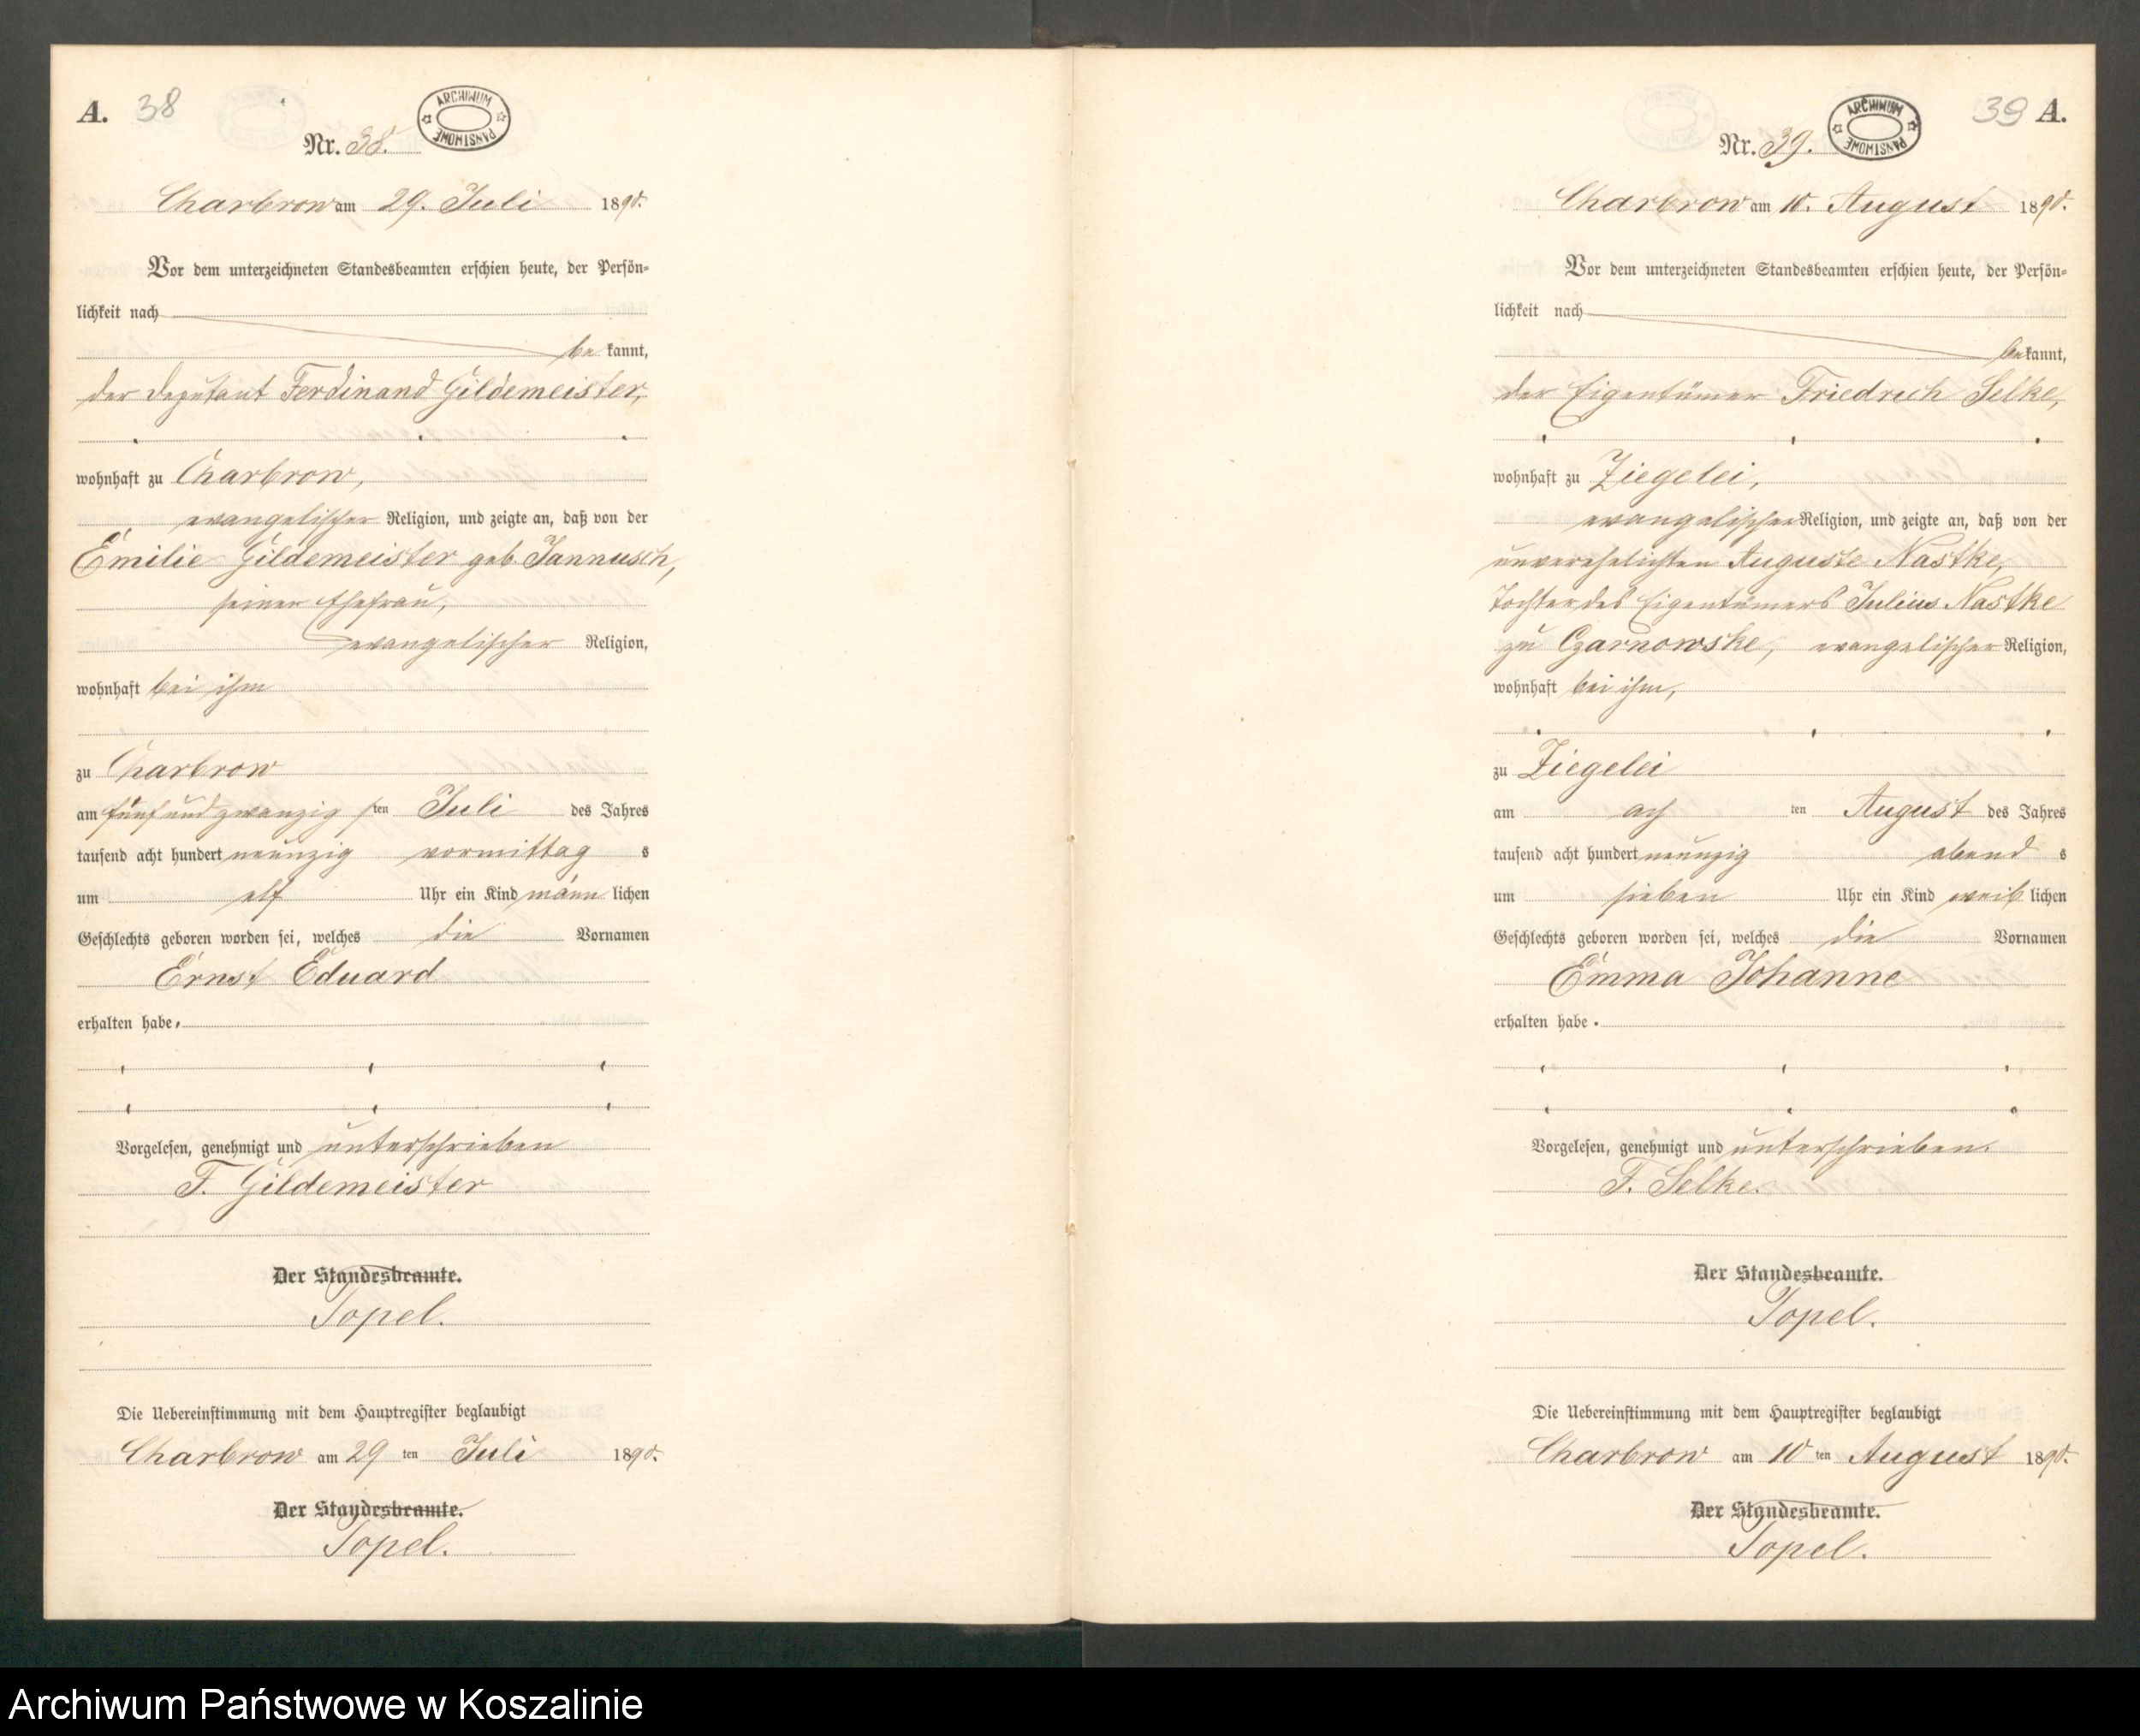 A. 38
ARCHIWUM PAŃSTWOWE
Nr. 38.
Charbrow am 29. Juli 1890.
Vor dem unterzeichneten Standesbeamten erschien heute, der Persön-
lichkeit nach
be kannt,
der Deputant Ferdinand Gildemeister,
wohnhaft zu Charbrow,
evangelischer Religion, und zeigte an, daß von der
Emilie Gildemeister geb. Jannusch,
seiner Ehefrau,
evangelischer Religion,
wohnhaft bei ihm
zu Charbrow
am fünfundzwanzigsten Juli des Jahres
tausend acht hundert neunzig vormittag s
um elf Uhr ein Kind männ lichen
Geschlechts geboren worden sei, welches die Vornamen
Ernst Eduard
erhalten habe.
Vorgelesen, genehmigt und unterschrieben
F. Gildemeister
Der Standesbeamte.
Topel.
Die Uebereinstimmung mit dem Hauptregister beglaubigt
Charbrow am 29 ten Juli 1890.
Der Standesbeamte.
Topel.
39 A.
ARCHIWUM PAŃSTWOWE
Nr. 39.
Charbrow am 10. August 1890.
Vor dem unterzeichneten Standesbeamten erschien heute, der Persön-
lichkeit nach
bekannt,
der Eigentümer Friedrich Selke,
wohnhaft zu Ziegelei,
evangelischer Religion, und zeigte an, daß von der
unverehelichten Auguste Nastke,
Tochter des Eigentümers Julius Nastke
zu Czarnowske, evangelischer Religion,
wohnhaft bei ihm,
zu Ziegelei
am ach ten August des Jahres
tausend acht hundert neunzig abend s
um sieben Uhr ein Kind weib lichen
Geschlechts geboren worden sei, welches die Vornamen
Emma Johanne
erhalten habe.
Vorgelesen, genehmigt und unterschrieben.
F. Selke.
Der Standesbeamte.
Topel.
Die Uebereinstimmung mit dem Hauptregister beglaubigt
Charbrow am 10 ten August 1890.
Der Standesbeamte.
Topel.
Archiwum Państwowe w Koszalinie